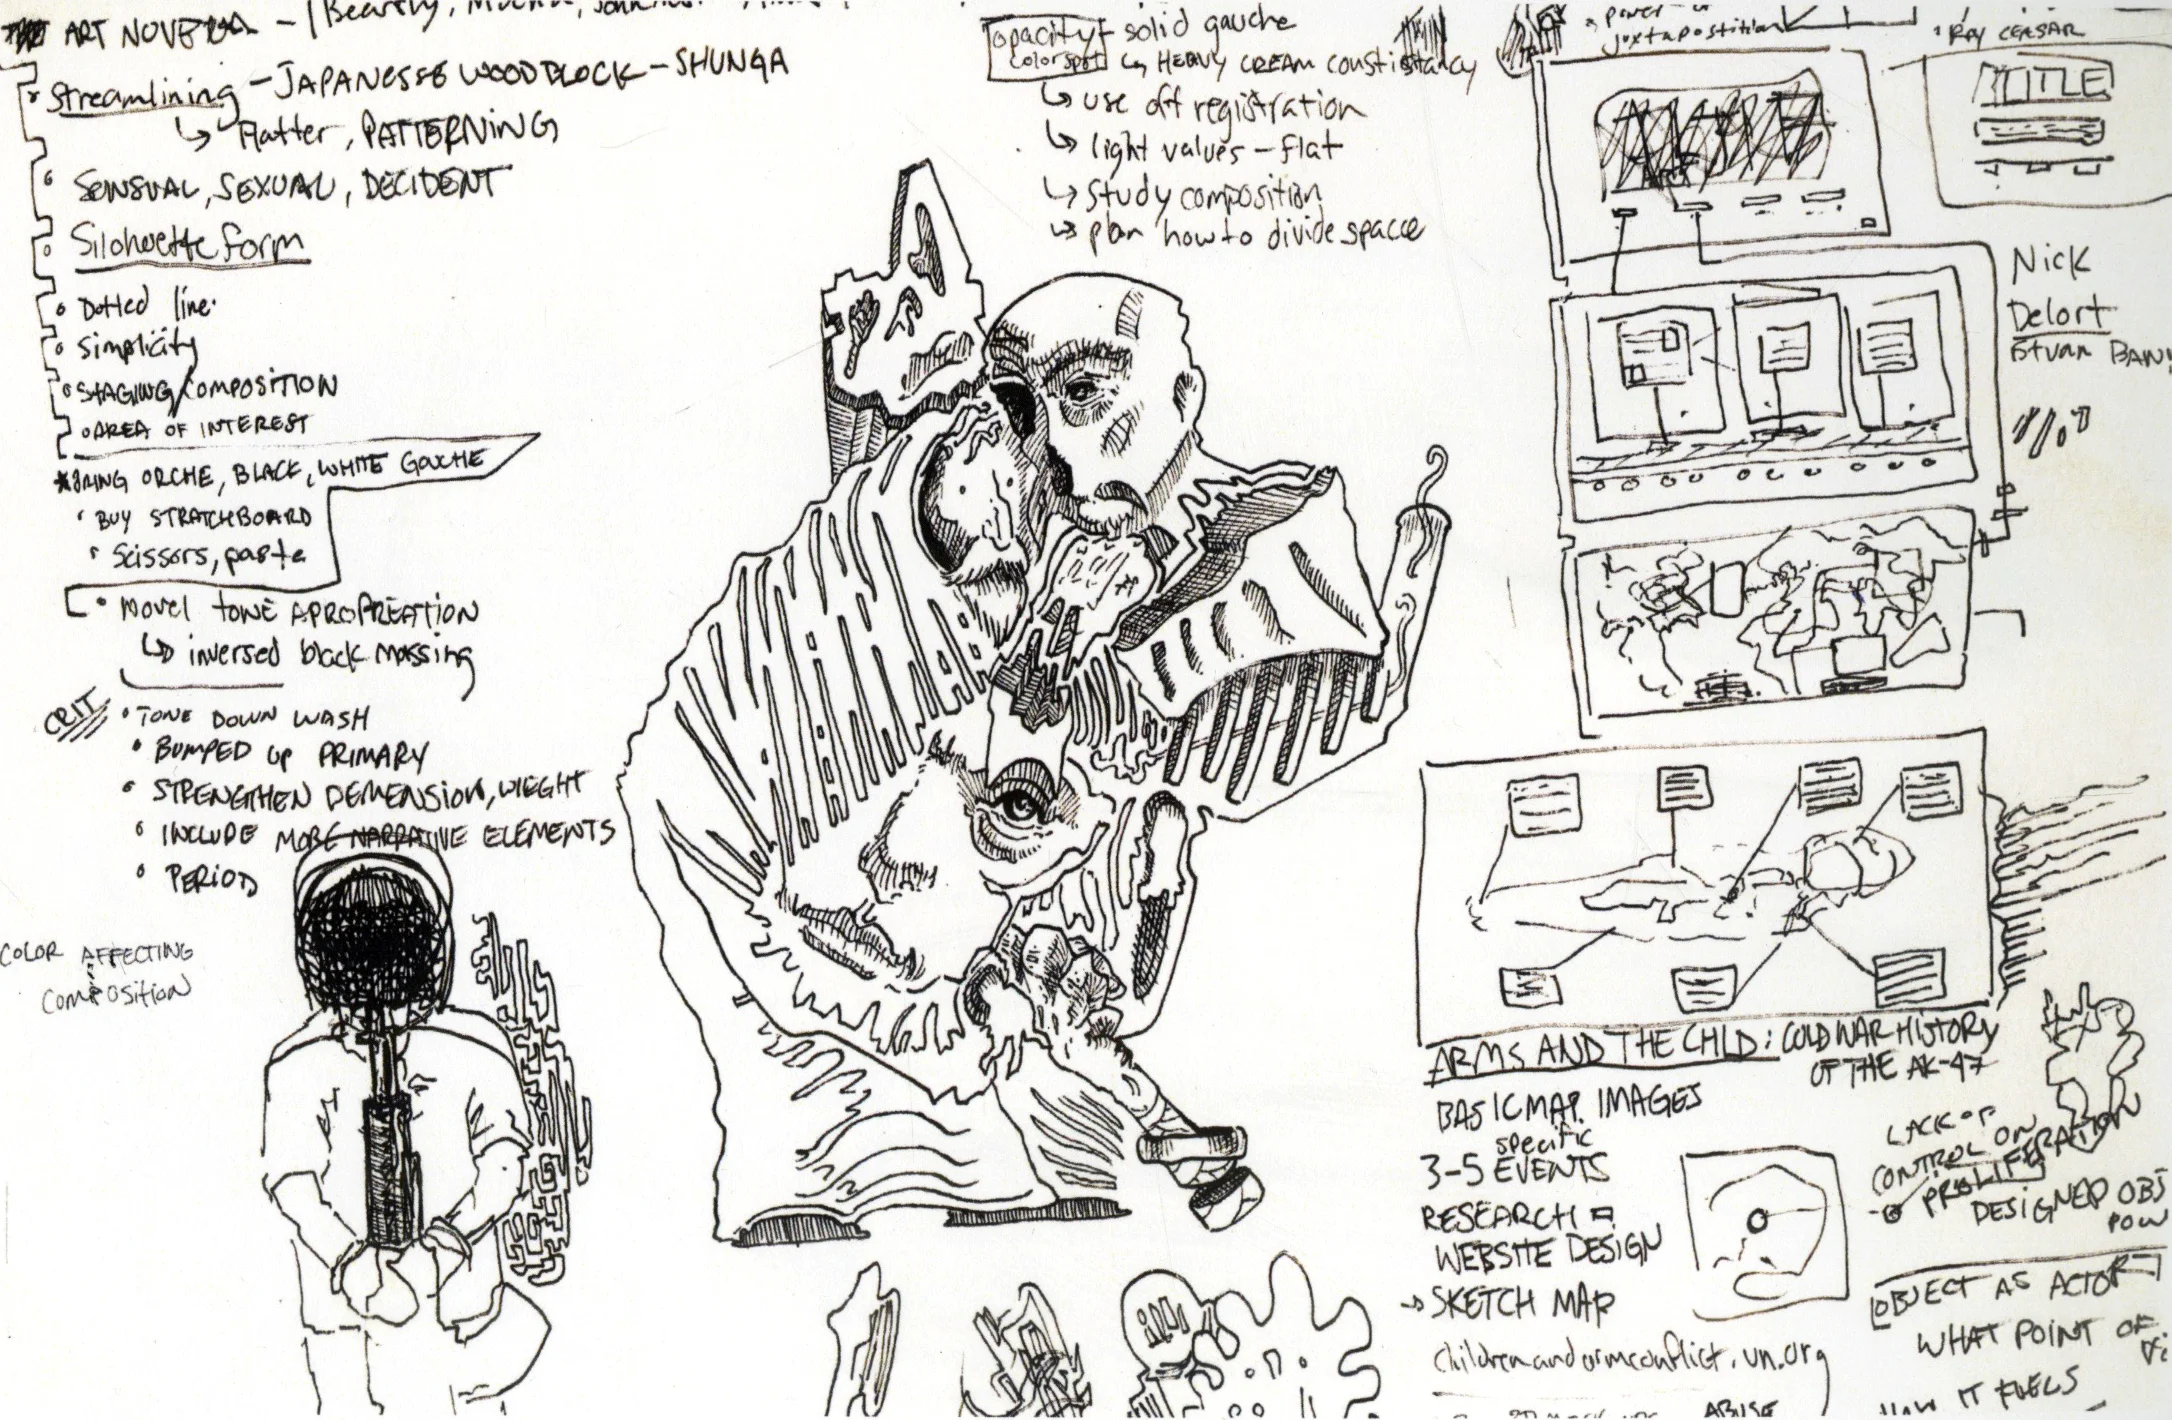 ART NOVEUA - (Bearsly, Mucha,
• Streamlining - JAPANESSE WOODBLOCK - SHUNGA
↳ Flatter, PATTERNING
• SENSUAL, SEXUAL, DECIDENT
• Silohouette form
• Dotted line
• Simplicity
• STAGING/COMPOSITION
• AREA OF INTEREST
* BRING ORCHE, BLACK, WHITE GOUCHE
• BUY STRATCHBOARD
• Scissors, paste
• Movel TONE APROPREATION
↳ inversed black massing
CRIT
• TONE DOWN WASH
• BUMPED UP PRIMARY
• STRENGTHEN DEMENSION, WIEGHT
• INCLUDE MORE NARRATIVE ELEMENTS
• PERIOD
COLOR AFFECTING
COMPOSITION
opacity - solid gauche
color spot ↳ HEAVY CREAM
↳ use off registration
↳ light values - flat
↳ Study composition
↳ plan how to divide spacce
• power of
juxtapostition
• RAY CEASAR
TITLE
Nick
Delort
ARMS AND THE CHILD: COLD WAR HISTORY
OF THE AK-47
BASIC MAP IMAGES
specific
3-5 EVENTS
RESEARCH
WEBSITE DESIGN
→ SKETCH MAP
childrenandarmconflict.un.org
ABUSE
LACK OF
CONTROL ON
PROLIFERATION
DESIGNED OBJ
POW
OBJECT AS ACTOR
WHAT POINT OF
HOW IT FUELS